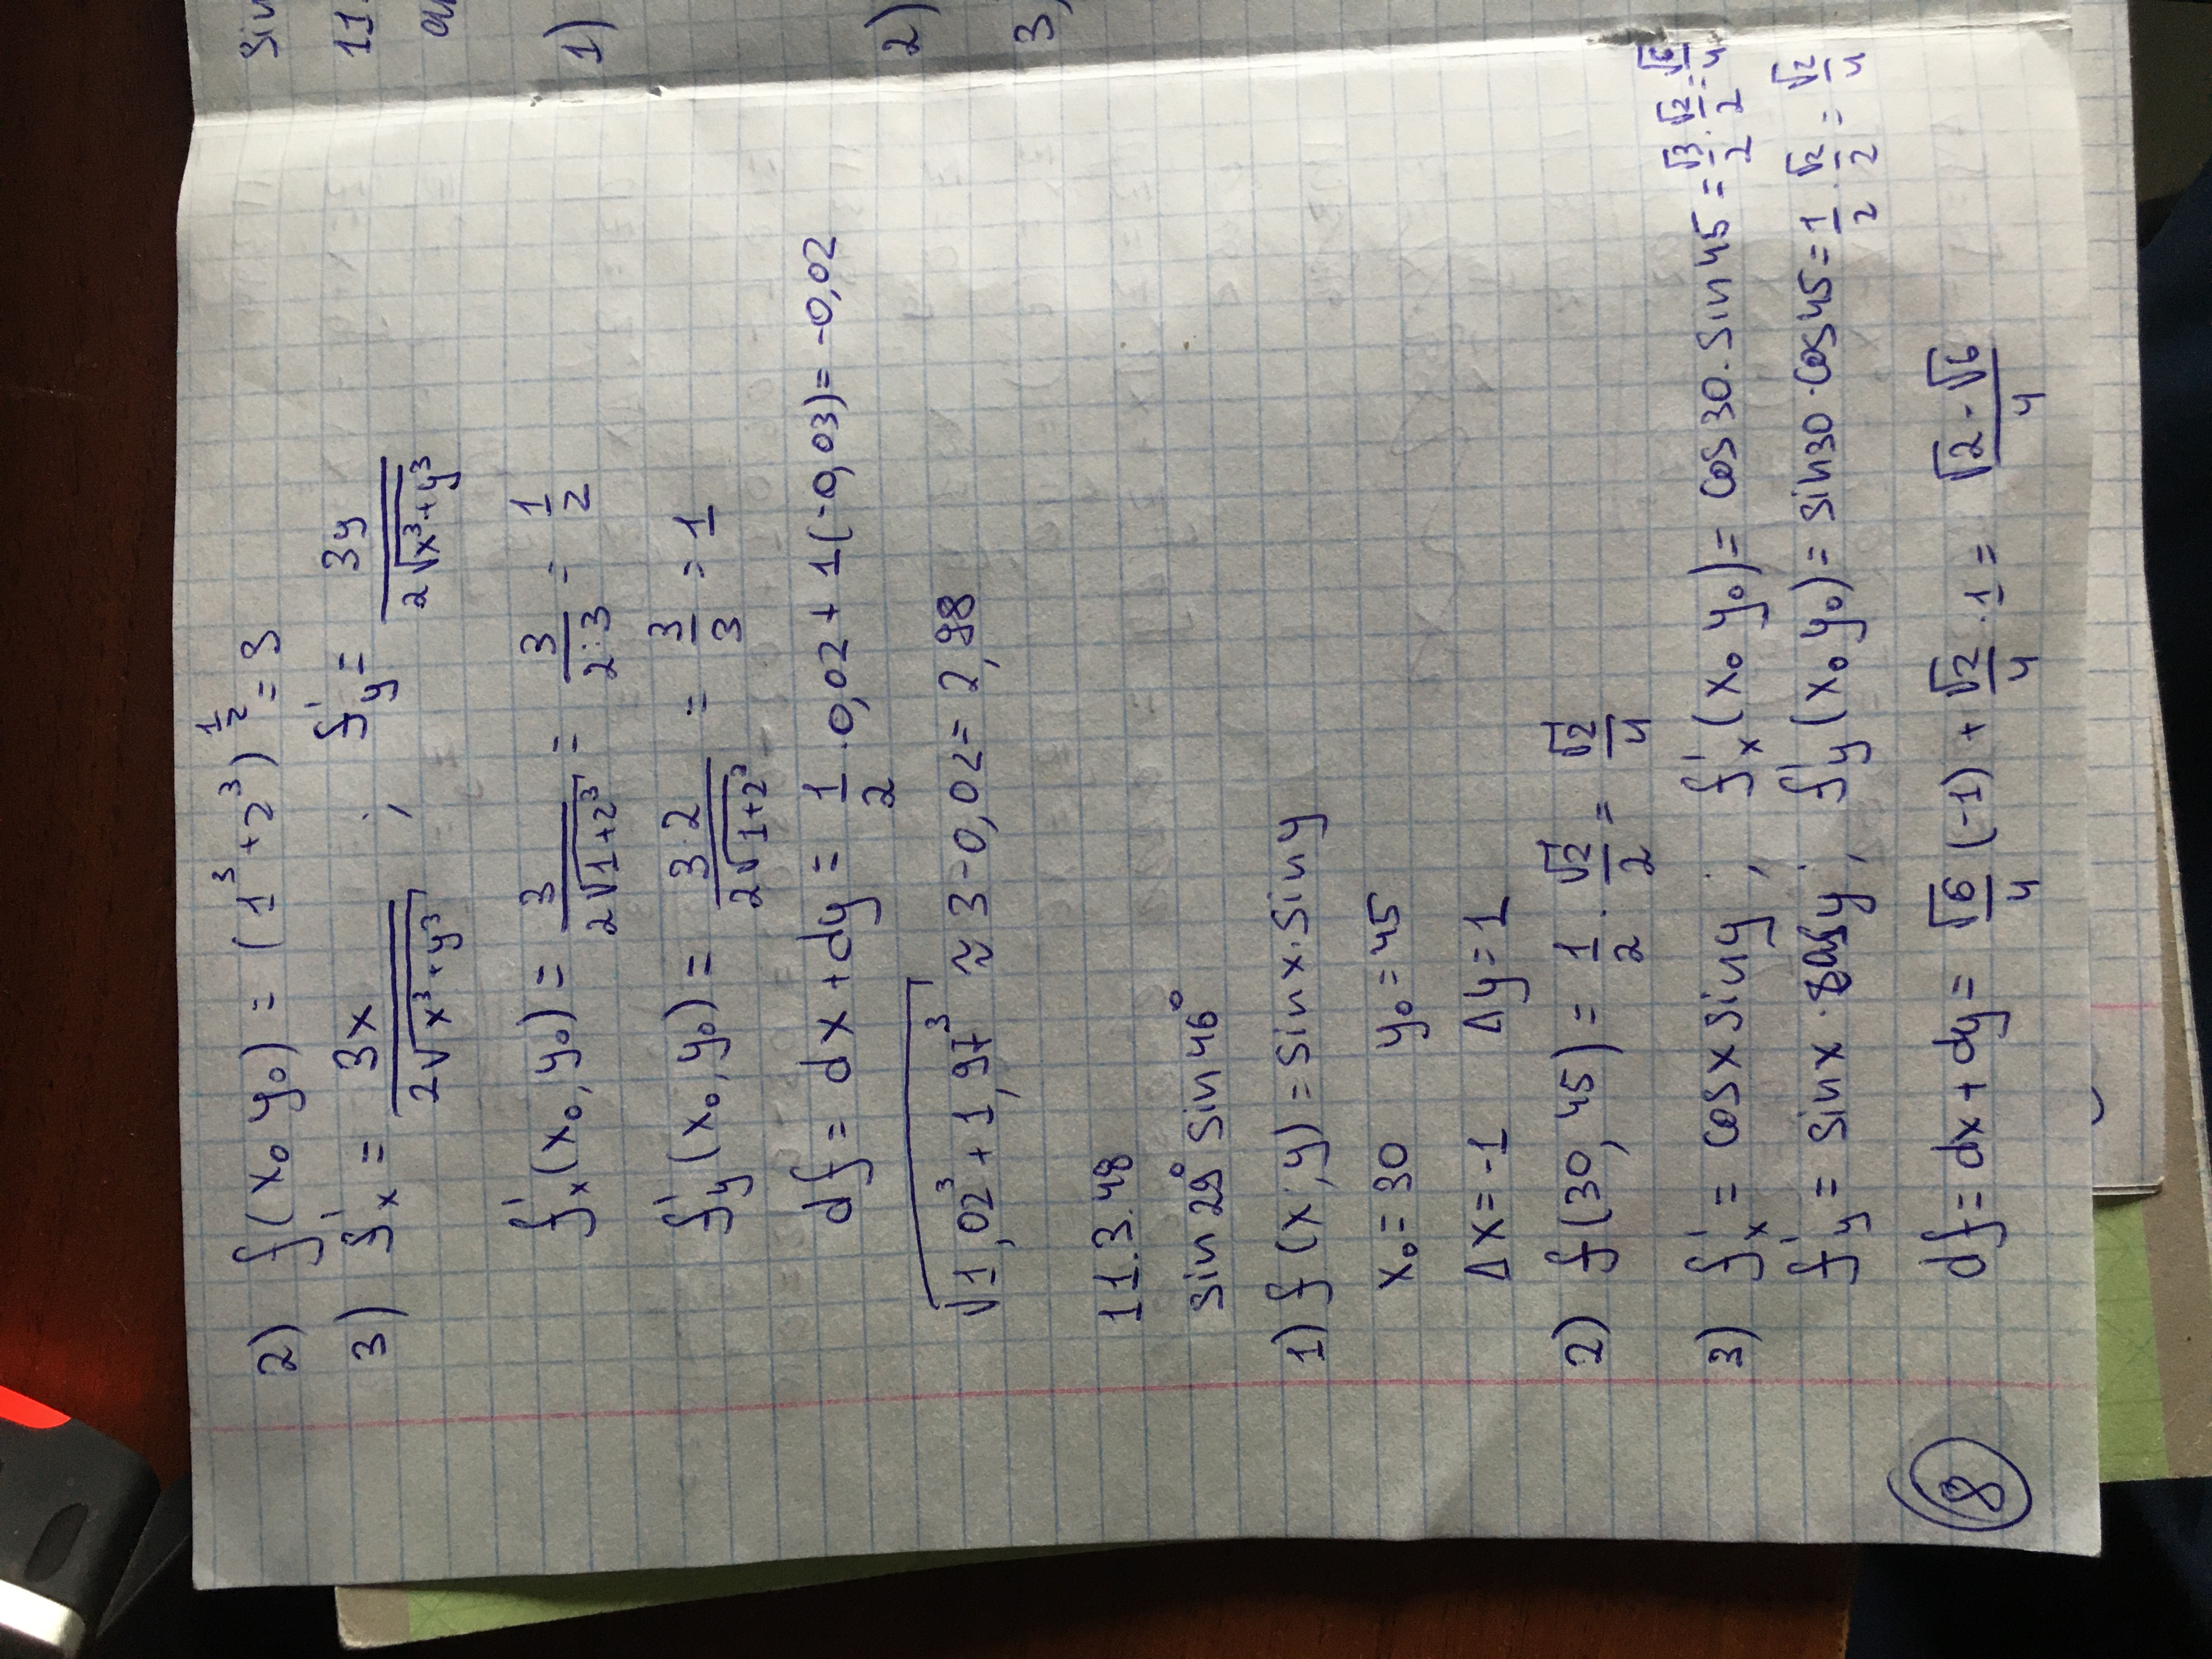 2) f(x₀ y₀) = (1³+2³)^{1/2} = 3
3) f'ₓ = 3x / 2√(x³+y³) ; f'_y = 3y / 2√(x³+y³)
f'ₓ(x₀, y₀) = 3 / 2√(1+2³) = 3 / 2·3 = 1/2
f'_y(x₀, y₀) = 3·2 / 2√(1+2³) = 3/3 = 1
df = dx + dy = 1/2 · 0,02 + 1(-0,03) = -0,02
√(1,02³ + 1,97³) ≈ 3 - 0,02 = 2,98
11.3.48
sin 29° sin 46°
1) f(x; y) = sin x · sin y
x₀ = 30 y₀ = 45
Δx = -1 Δy = 1
2) f(30, 45) = 1/2 · √2/2 = √2/4
3) f'ₓ = cos x sin y ; f'ₓ(x₀ y₀) = cos 30 · sin 45 = √3/2 · √2/2 = √6/4
f'_y = sin x · cos y ; f'_y(x₀ y₀) = sin 30 · cos 45 = 1/2 · √2/2 = √2/4
8 df = dx + dy = √6/4 (-1) + √2/4 · 1 = (√2 - √6)/4
sin
11.
1)
2)
3,